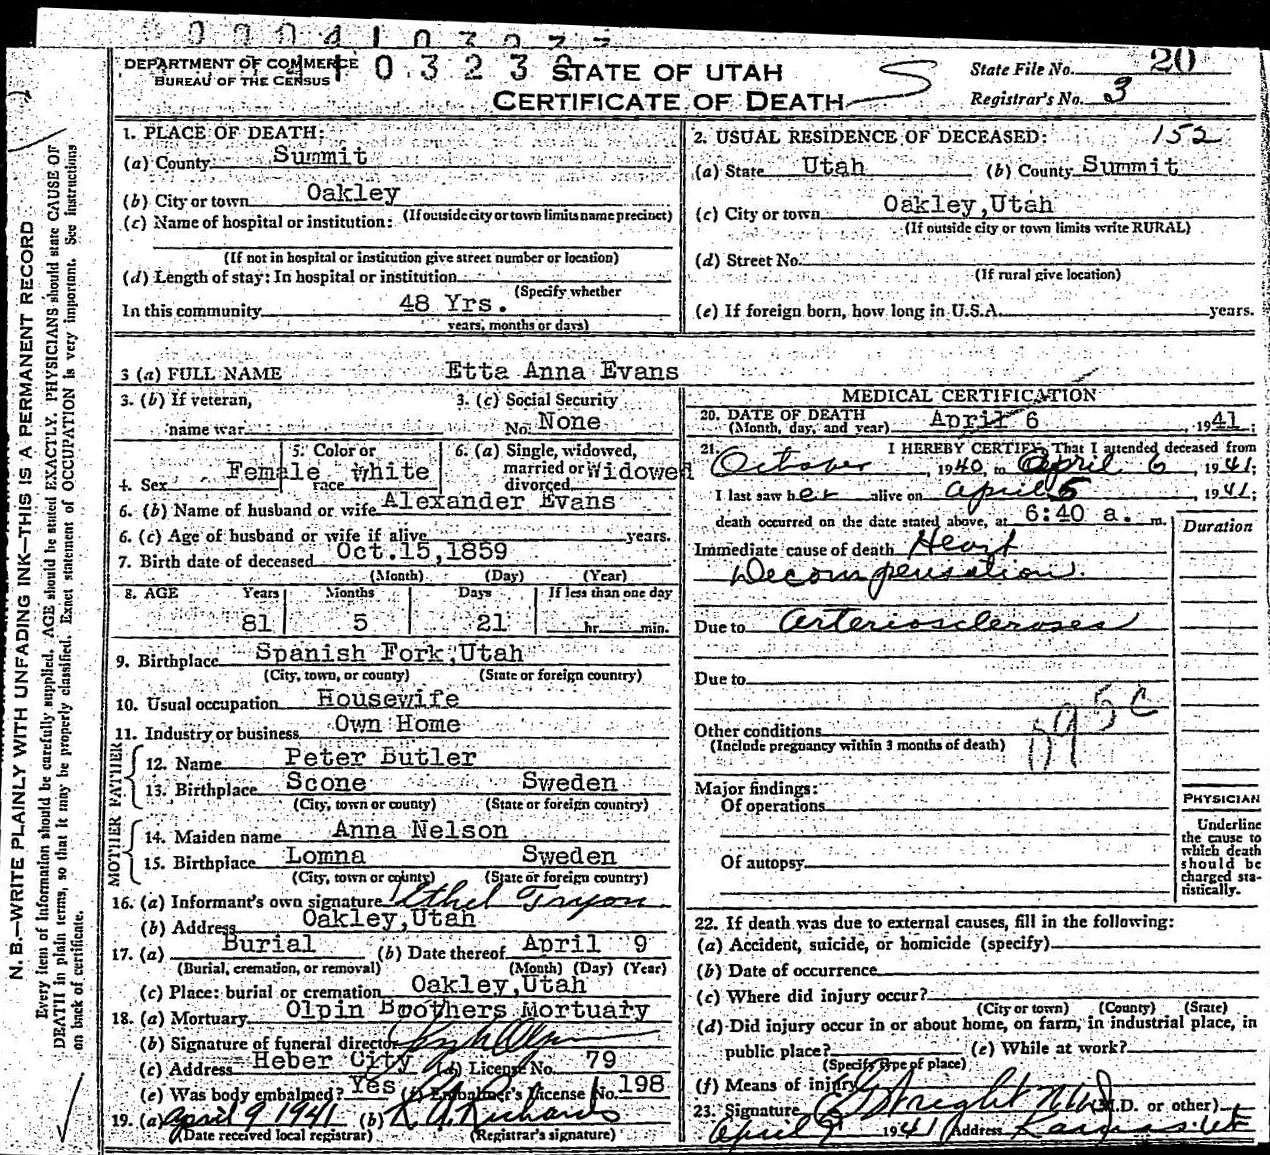 DEPARTMENT OF COMMERCE
BUREAU OF THE CENSUS
STATE OF UTAH
CERTIFICATE OF DEATH
State File No. 20
Registrar's No. 3
1. PLACE OF DEATH:
(a) County Summit
(b) City or town Oakley
(If outside city or town limits name precinct)
(c) Name of hospital or institution:
(If not in hospital or institution give street number or location)
(d) Length of stay: In hospital or institution
(Specify whether
In this community 48 Yrs.
years, months or days)
2. USUAL RESIDENCE OF DECEASED: 152
(a) State Utah (b) County Summit
(c) City or town Oakley,Utah
(If outside city or town limits write RURAL)
(d) Street No.
(If rural give location)
(e) If foreign born, how long in U.S.A. years.
3 (a) FULL NAME Etta Anna Evans
3. (b) If veteran, name war
3. (c) Social Security No. None
4. Sex Female
5. Color or race White
6. (a) Single, widowed, married or divorced Widowed
6. (b) Name of husband or wife Alexander Evans
6. (c) Age of husband or wife if alive years.
7. Birth date of deceased Oct.15,1859
(Month) (Day) (Year)
8. AGE Years Months Days If less than one day
81 5 21 hr. min.
9. Birthplace Spanish Fork,Utah
(City, town, or county) (State or foreign country)
10. Usual occupation Housewife
11. Industry or business Own Home
FATHER
12. Name Peter Butler
13. Birthplace Scone Sweden
(City, town or county) (State or foreign country)
MOTHER
14. Maiden name Anna Nelson
15. Birthplace Lomna Sweden
(City, town or county) (State or foreign country)
16. (a) Informant's own signature Ethel Tryon
(b) Address Oakley,Utah
17. (a) Burial (b) Date thereof April 9
(Burial, cremation, or removal) (Month) (Day) (Year)
(c) Place: burial or cremation Oakley,Utah
18. (a) Mortuary Olpin Brothers Mortuary
(b) Signature of funeral director
(c) Address Heber City (d) License No. 79
(e) Was body embalmed? Yes (f) Embalmer's License No. 198
19. (a) April 9 1941 (b) Richards
(Date received local registrar) (Registrar's signature)
MEDICAL CERTIFICATION
20. DATE OF DEATH April 6, 1941;
(Month, day, and year)
21. I HEREBY CERTIFY, That I attended deceased from
October, 1940, to April 6, 1941;
I last saw her alive on April 5, 1941;
death occurred on the date stated above, at 6:40 a. m.
Duration
Immediate cause of death Heart
Decompensation.
Due to Arterioscleroses
Due to
Other conditions
(Include pregnancy within 3 months of death)
95c
Major findings:
Of operations
Of autopsy
PHYSICIAN
Underline
the cause to
which death
should be
charged sta-
tistically.
22. If death was due to external causes, fill in the following:
(a) Accident, suicide, or homicide (specify)
(b) Date of occurrence
(c) Where did injury occur?
(City or town) (County) (State)
(d) Did injury occur in or about home, on farm, in industrial place, in
public place? (e) While at work?
(Specify type of place)
(f) Means of injury
23. Signature (M.D. or other)
April 9 1941 Address Kamas Ut
N. B.—WRITE PLAINLY WITH UNFADING INK—THIS IS A PERMANENT RECORD
Every item of Information should be carefully supplied. AGE should be stated EXACTLY. PHYSICIANS should state CAUSE OF
DEATH in plain terms, so that it may be properly classified. Exact statement of OCCUPATION is very important. See instructions
on back of certificate.